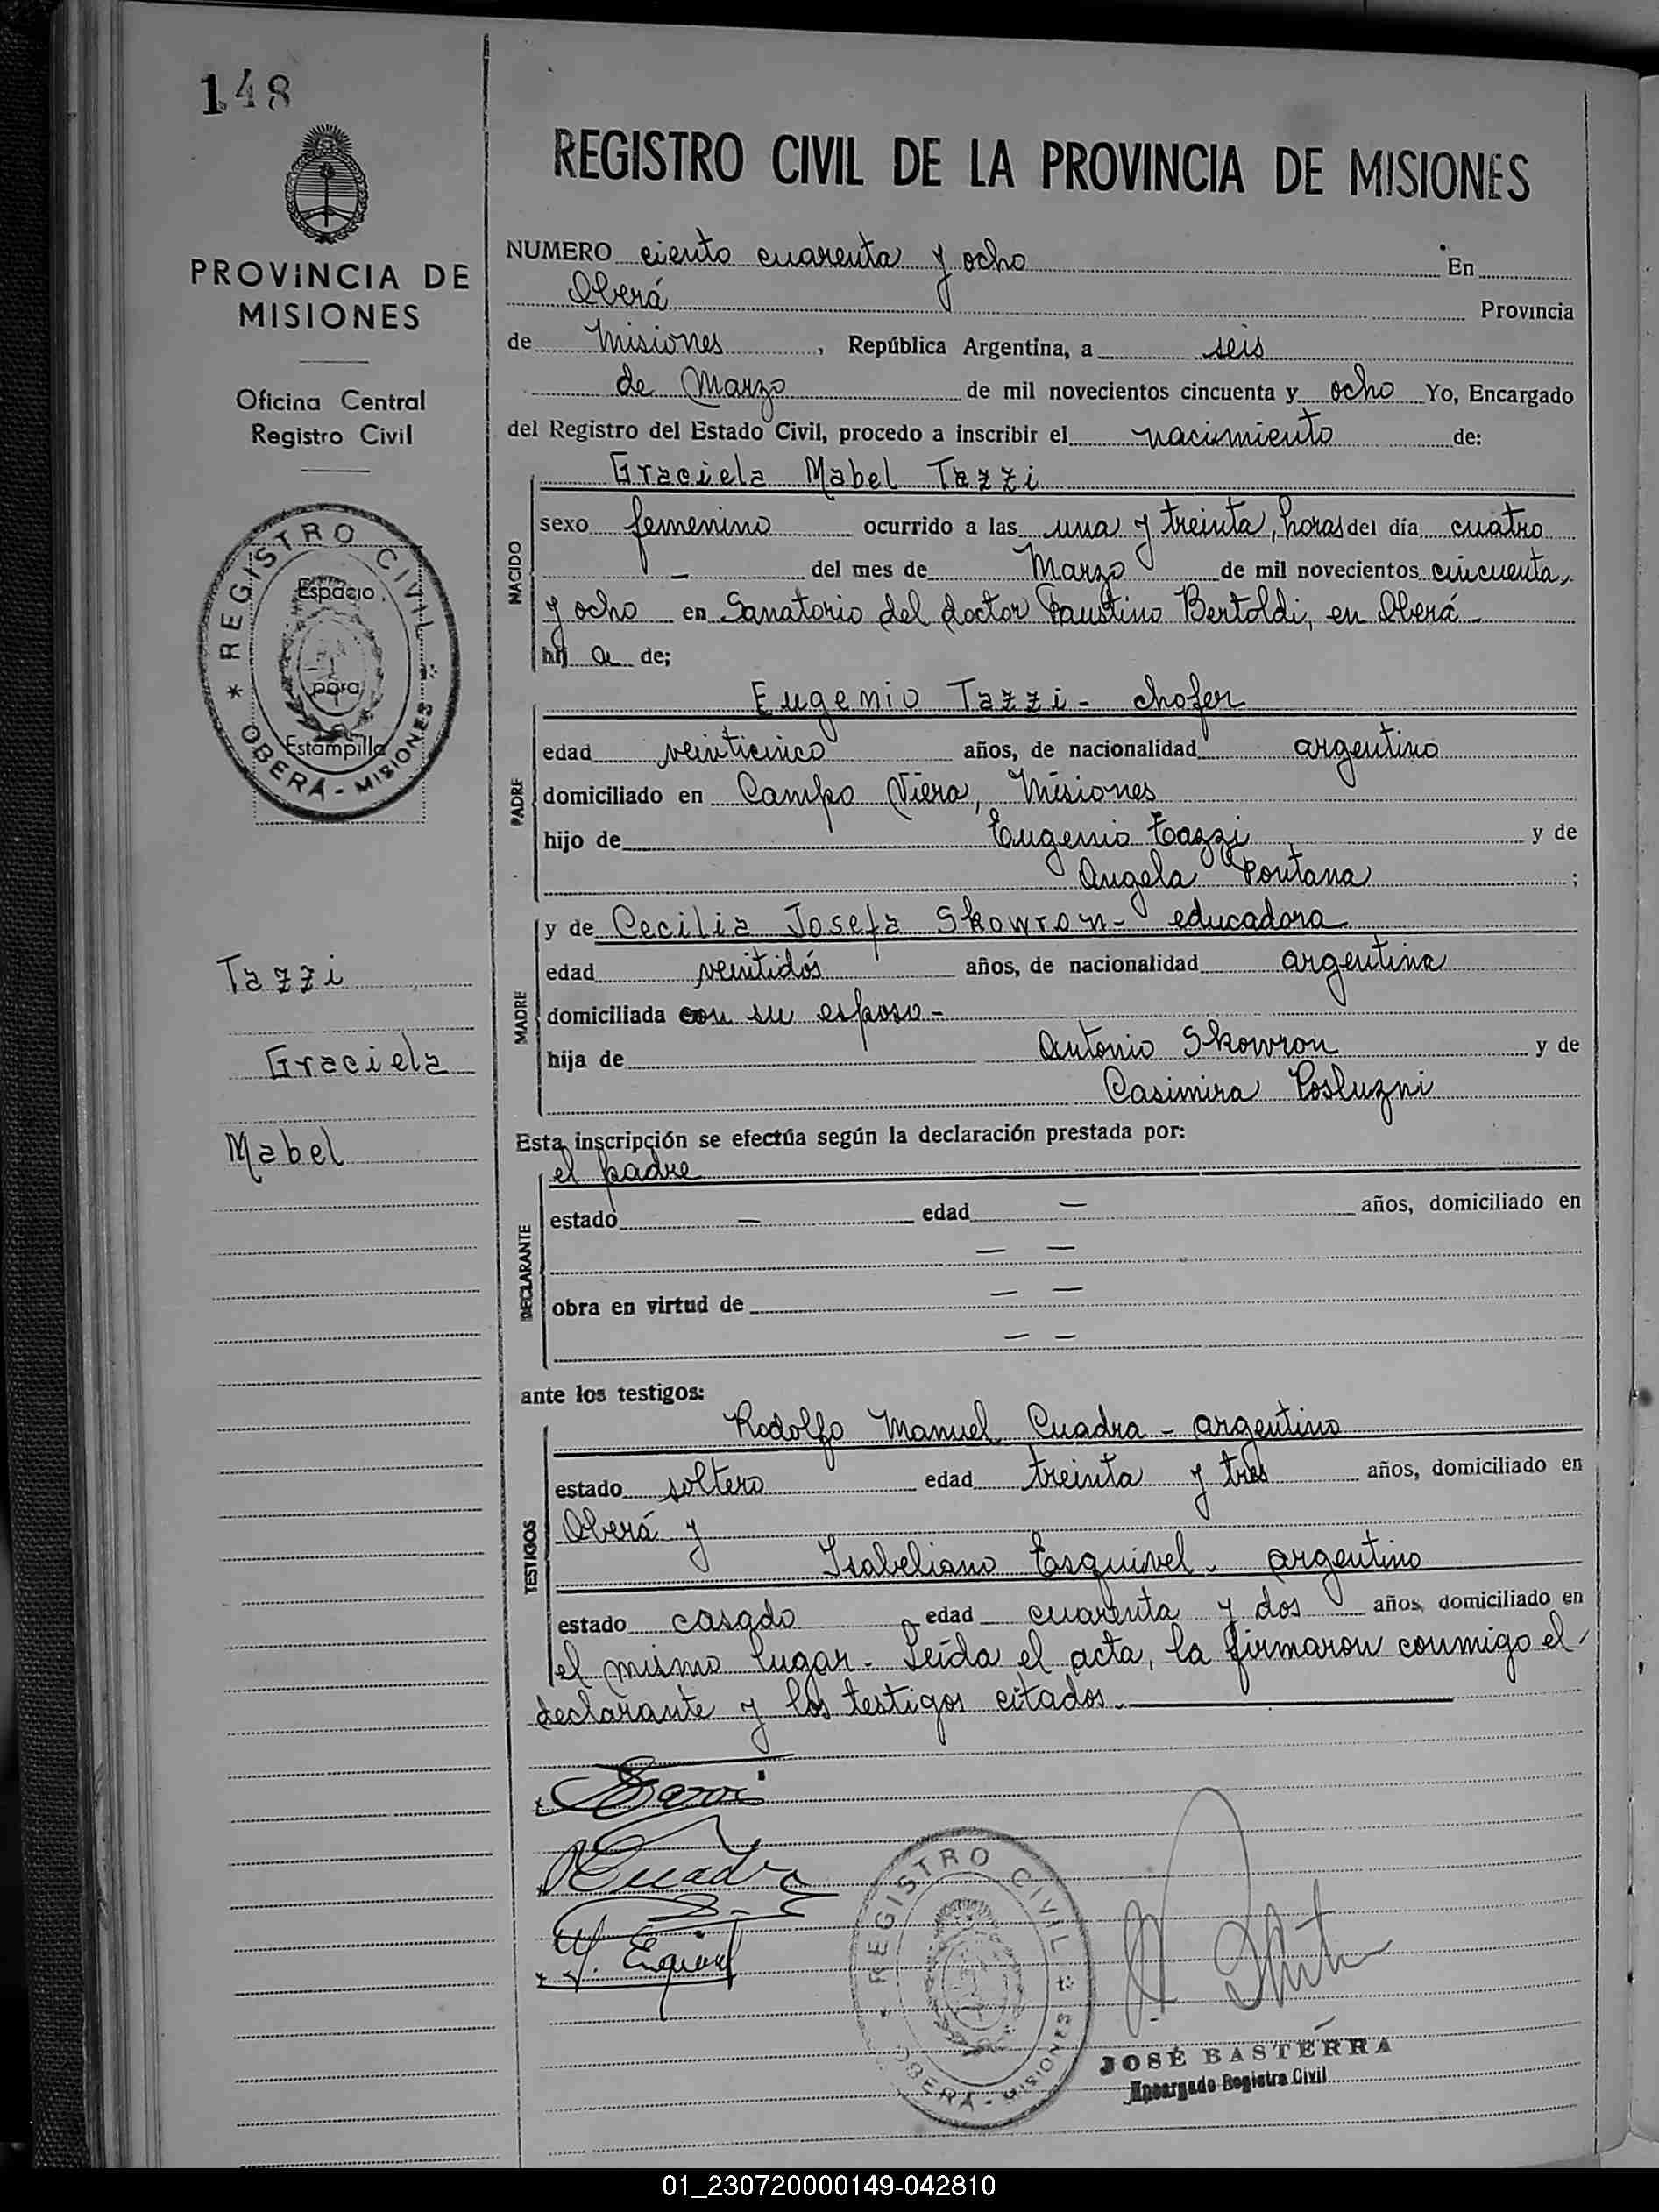 148
PROVINCIA DE
MISIONES
Oficina Central
Registro Civil
REGISTRO CIVIL
Espacio
para
Estampilla
* OBERÁ - MISIONES *
Tazzi
Graciela
Mabel
REGISTRO CIVIL DE LA PROVINCIA DE MISIONES
NUMERO ciento cuarenta y ocho En
Oberá Provincia
de Misiones, República Argentina, a seis
de Marzo de mil novecientos cincuenta y ocho Yo, Encargado
del Registro del Estado Civil, procedo a inscribir el nacimiento de:
NACIDO
Graciela Mabel Tazzi
sexo femenino ocurrido a las una y treinta, horas del día cuatro
- del mes de Marzo de mil novecientos cincuenta,
y ocho en Sanatorio del doctor Faustino Bertoldi, en Oberá.-
hij a de;
PADRE
Eugenio Tazzi - chofer
edad veinticinco años, de nacionalidad argentino
domiciliado en Campo Viera, Misiones
hijo de Eugenio Tazzi y de
Angela Fontana ;
MADRE
y de Cecilia Josefa Skowron - educadora
edad veintidós años, de nacionalidad argentina
domiciliada con su esposo -
hija de Antonio Skowron y de
Casimira Posluzni
Esta inscripción se efectúa según la declaración prestada por:
DECLARANTE
el padre
estado — edad — años, domiciliado en
— —
obra en virtud de — —
— —
ante los testigos:
TESTIGOS
Rodolfo Manuel Cuadra - argentino
estado soltero edad treinta y tres años, domiciliado en
Oberá y
Isabeliano Esquivel - argentino
estado casado edad cuarenta y dos años, domiciliado en
el mismo lugar.- Leída el acta, la firmaron conmigo el
declarante y los testigos citados.-
Tazzi
RCuadra
Y. Esquivel
REGISTRO CIVIL
* OBERÁ - MISIONES *
JOSÉ BASTERRA
Encargado Registro Civil
01_230720000149-042810